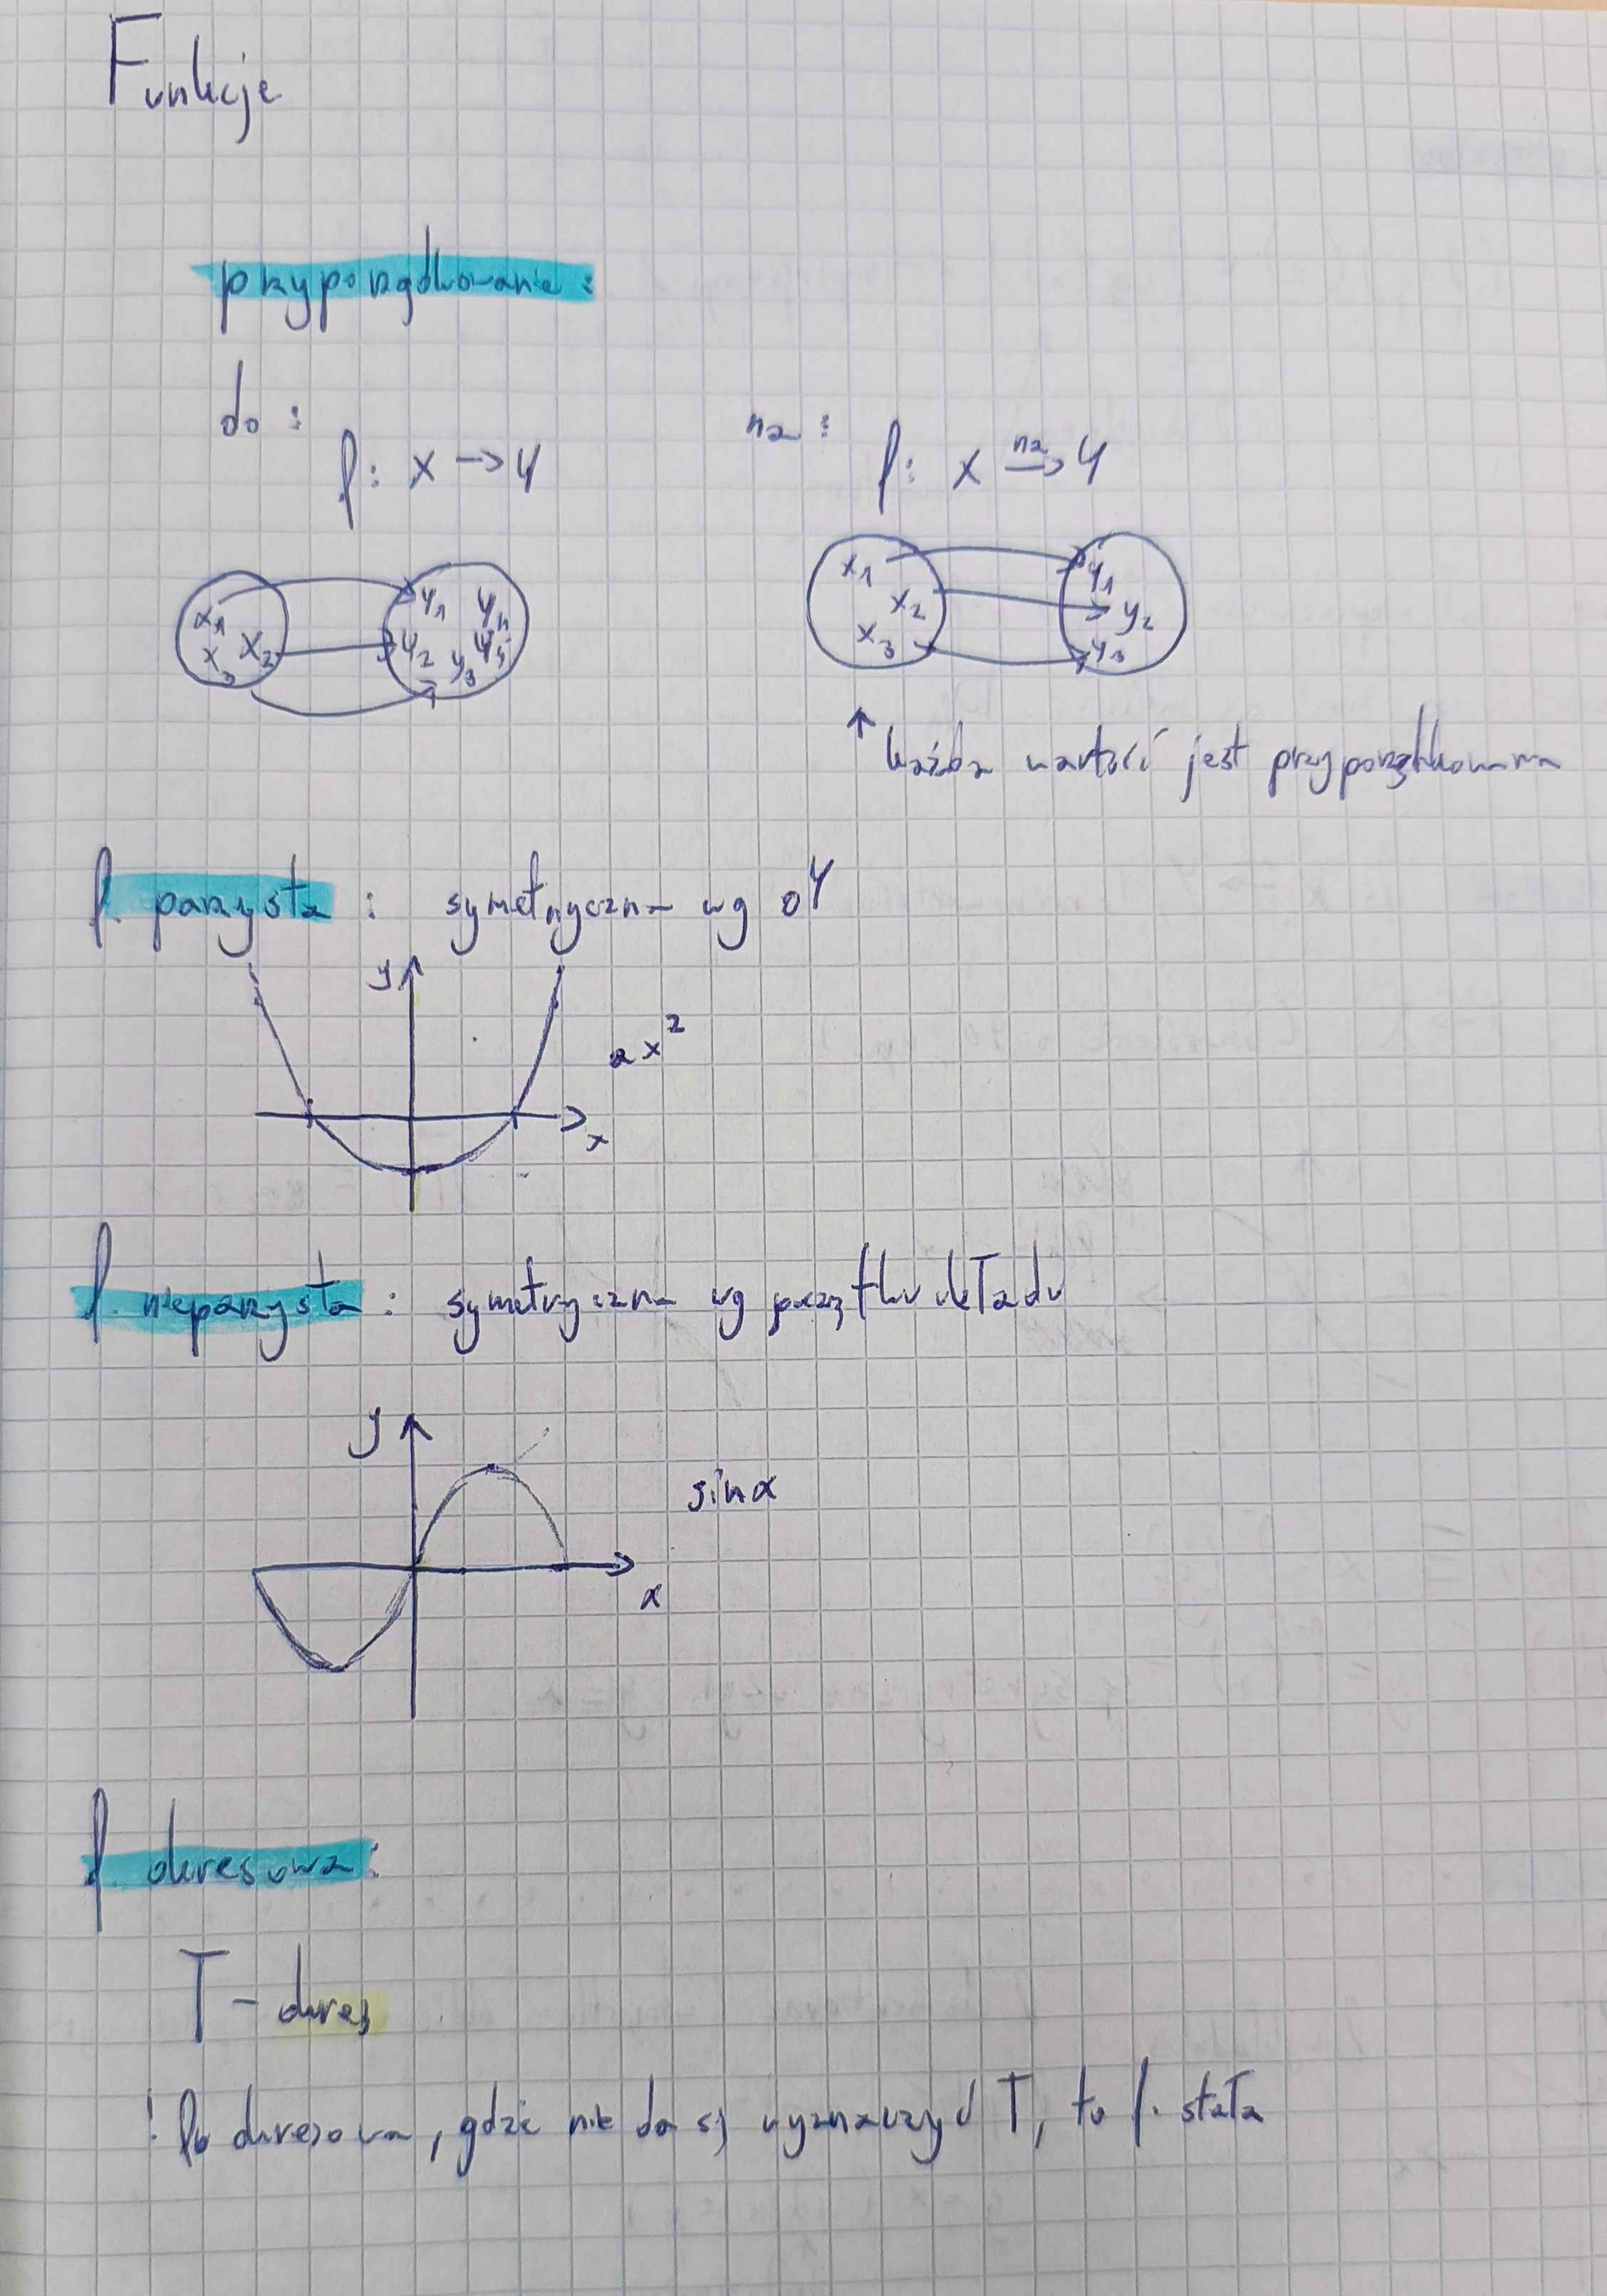 Funkcje
przyporządkowanie:
do: na:
f: X → Y f: X na→ Y
x1 x2 x3 y1 y2 y3 y4 y5 x1 x2 x3 y1 y2 y3
↑ każda wartość jest przyporządkowana
f. parzysta: symetryczna wg OY
y
ax²
x
f. nieparzysta: symetryczna wg początku układu
y
sinα
α
f. okresowa:
T - okres
! f. okresowa, gdzie nie da się wyznaczyć T, to f. stała